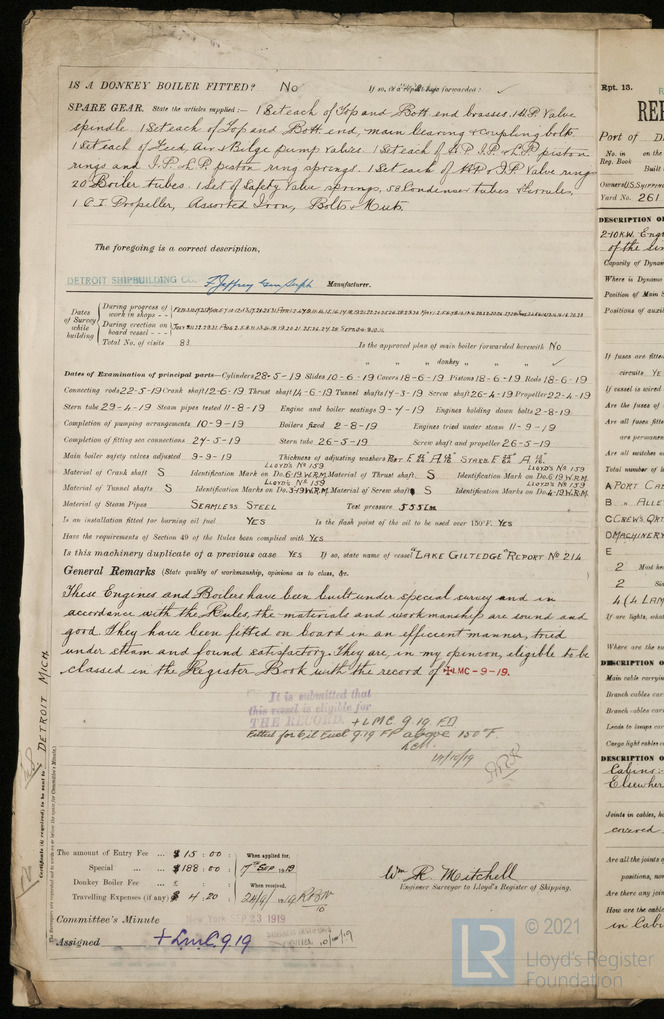 IS A DONKEY BOILER FITTED? No If so, is a report now forwarded: ✓
SPARE GEAR. State the articles supplied:— 1 Set each of Top and Bott. end brasses. 1 H.P. Valve
spindle. 1 Set each of Top end Bott end, main bearing & coupling bolts
1 Set each of Feed, Air & Bilge pump valves. 1 Set each of H.P. I.P. & L.P. piston
rings and I.P. & L.P. piston ring springs. 1 Set each of H.P. & I.P. Valve rings
20 Boiler tubes. 1 Set of Safety Valve springs, 58 Condenser tubes & ferrules,
1 C.I. Propeller, Assorted Iron, Bolts & Nuts.
The foregoing is a correct description,
DETROIT SHIPBUILDING CO. Manufacturer.
Dates of Survey while building
During progress of work in shops - -
During erection on board vessel - - -
Total No. of visits 83 Is the approved plan of main boiler forwarded herewith No
" " " donkey " " " ✓
Dates of Examination of principal parts—Cylinders 28-5-19 Slides 10-6-19 Covers 18-6-19 Pistons 18-6-19 Rods 18-6-19
Connecting rods 22-5-19 Crank shaft 12-6-19 Thrust shaft 14-6-19 Tunnel shafts 14-3-19 Screw shaft 26-4-19 Propeller 22-4-19
Stern tube 29-4-19 Steam pipes tested 11-8-19 Engine and boiler seatings 9-4-19 Engines holding down bolts 2-8-19
Completion of pumping arrangements 10-9-19 Boilers fixed 2-8-19 Engines tried under steam 11-9-19
Completion of fitting sea connections 24-5-19 Stern tube 26-5-19 Screw shaft and propeller 26-5-19
Main boiler safety valves adjusted 9-9-19 Thickness of adjusting washers
Material of Crank shaft S Identification Mark on Do. LLOYD'S No 159 6-19 W.R.M. Material of Thrust shaft S Identification Mark on Do. LLOYD'S No 159 6-19 W.R.M.
Material of Tunnel shafts S Identification Marks on Do. LLOYD'S No 159 3-19 W.R.M. Material of Screw shafts S Identification Marks on Do. LLOYD'S No 159 4-19 W.R.M.
Material of Steam Pipes SEAMLESS STEEL Test pressure 555 Lbs
Is an installation fitted for burning oil fuel YES Is the flash point of the oil to be used over 150°F. YES
Have the requirements of Section 49 of the Rules been complied with YES
Is this machinery duplicate of a previous case YES If so, state name of vessel "LAKE GILTEDGE" REPORT No 214
General Remarks (State quality of workmanship, opinions as to class, &c.
These Engines and Boilers have been built under special survey and in
accordance with the Rules, the materials and workmanship are sound and
good. They have been fitted on board in an efficient manner, tried
under steam and found satisfactory. They are, in my opinion, eligible to be
classed in the Register Book with the record of +LMC-9-19.
It is submitted that
this vessel is eligible for
THE RECORD. + LMC 9.19 FD
Fitted for Oil Fuel 9.19 FP above 150°F.
DETROIT MICH
Certificate (if required) to be sent to
The amount of Entry Fee ... $ 15 : 00 : When applied for,
Special ... ... $ 188 : 00 : 17th Sep 1919
Donkey Boiler Fee ... £ : : When received,
Travelling Expenses (if any) $ 4 . 20
Wm R. Mitchell
Engineer Surveyor to Lloyd's Register of Shipping.
Committee's Minute New York SEP 23 1919
Assigned + L.M.C. 9.19
© 2021
LR Lloyd's Register
Foundation
Rpt. 13.
Port of
No. in
Reg. Book
on the
Built
Owners U.S. SHIPPING
Yard No. 261
DESCRIPTION O
Capacity of Dynam
Where is Dynamo
Position of Main S
Positions of auxil
If fuses are fitted
circuits YE
If vessel is wired
Are the fuses of
Are all fuses fitte
are permanen
Are all switches a
Total number of l
A PORT CA
B " ALLE
C CREW'S QRT
D MACHINERY
E
2 Mast he
2 Si
4 (4 LAM
If arc lights, what
Where are the su
DESCRIPTION O
Main cable carryin
Branch cables car
Branch cables car
Leads to lamps car
Cargo light cables c
DESCRIPTION O
Cabins:-
Elsewher
Joints in cables, ho
covered
Are all the joints o
positions, no
Are there any join
How are the cable
in Cabi